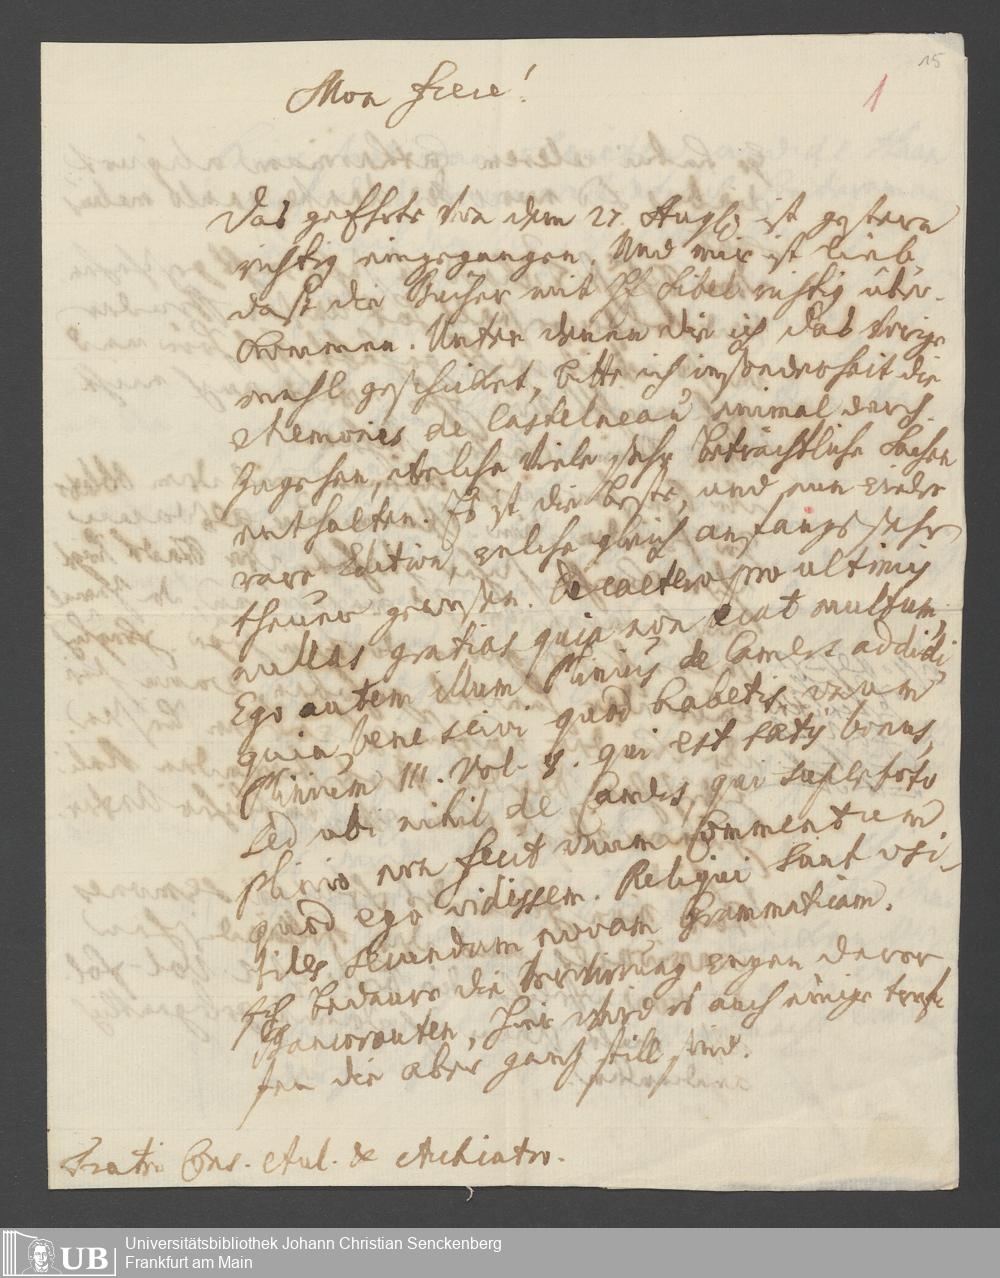 15
1
Mon frere!
Das geehrte von dem 27. Aug. ist gestern
richtig eingegangen. Und mir ist lieb
daß die Bücher mit H. Sibel richtig über-
kommen. Unter denen die ich das vorige
mahl geschicket, bitte ich insonderheit die
Memoires de Castelneau einmal durch-
zugehen, welche viele sehr beträchtliche Sachen
enthalten. Es ist die beste, und nun
rare Edition, welche gleich anfangs sehr
theuer gewesen. De caetero pro ultimis
nullas gratias quia non erat multum,
Ego autem illum Plinius de addidi,
quia bene scivi quod habetis unum
Plinium III. Vol. 8. qui est satis bonus,
sed ubi nihil de qui super toto
plinio non fecit unum Commentum
quod ego vidissem. Reliqui sunt uti-
les secundum novam Grammaticam.
Ich bedaure die Verwirrung wegen derer
Banqrouten, hier wird es auch einige
die aber gantz still sind.
Fratri Cons. Aul. & Archiatro.
UB
Universitätsbibliothek Johann Christian Senckenberg
Frankfurt am Main